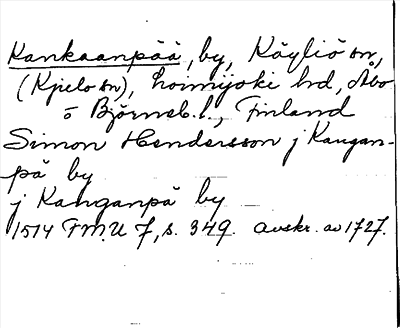 Kankaanpää, by, Köyliö sn,
(Kjulo sn), Loimijoki hd, Åbo
o Björneb. l., Finland
Simon Hendersson j Kangan-
pä by
j Kanganpä by
1514 FMU 7, s. 349. avskr. av 1727.